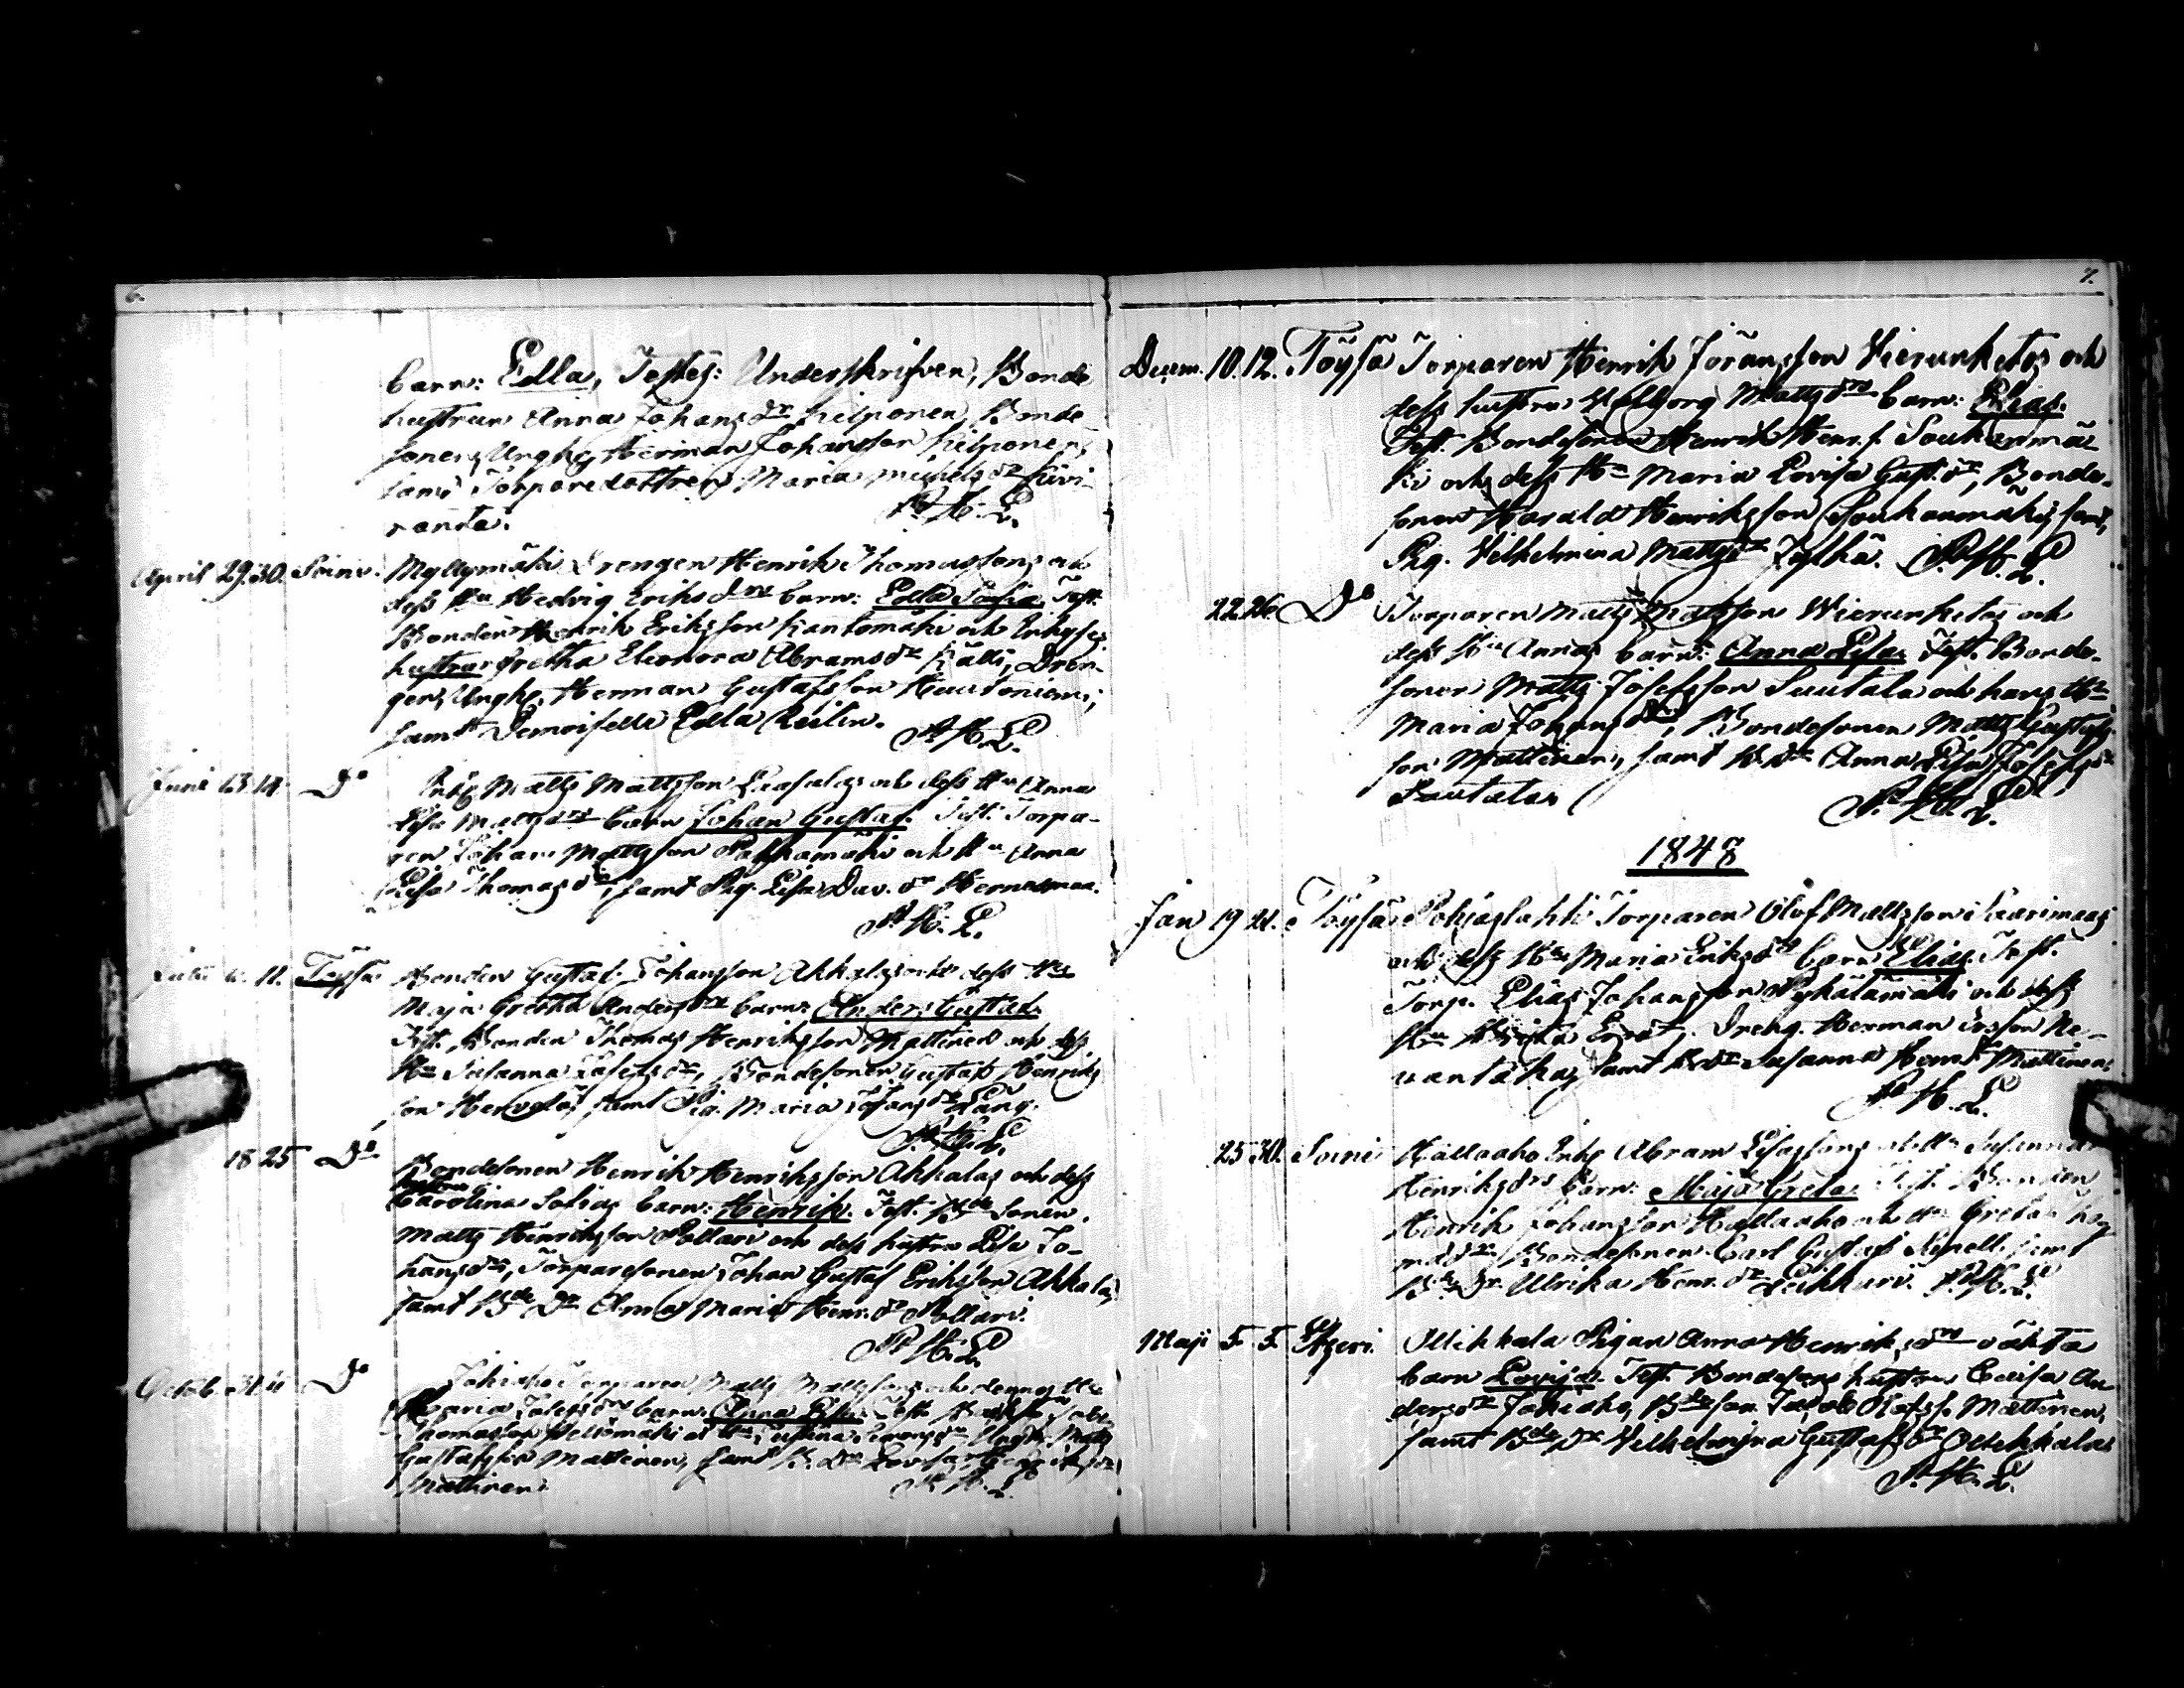 6.
barn: Edla, Testes: Underskrifven, Bonde
hustrun Anna Johansdr Kilponen, Bonde
sonen, Ungkg Herman Johansson Kilponen,
samt Torparedottren Maria Michelsdr Kivi-
ranta.
P. H. L.
April 29. 30. Soini. Myllymäki Drengen Henrik Thomassons och
dess Hu Hedvig Eriksdrs barn: Edla Sofia, Test.
Bonden Henrik Eriksson Kantomäki och
hustrun Gretha Eleonora Abramsdr Källi, Dren-
gen, Ungkg. Herman Gustafsson Huutoniemi,
samt Demoiselle Edla
P. H. L.
Juni 13 14 Do Matts Mattsson och dess Hu Anna
Lisa Mattsdrs barn Johan Gustaf. Test. Torpa-
ren Johan Mattsson och Hu Anna
Lisa Thomasdr, samt Pig. Lisa Dav. dr Hernesmaa.
P. H. L.
11. Töysä Bonden Gustaf Johansson Akkalas och dess Hu
Maja Gretha Andersdrs barn: Anders Gustaf.
Test. Bonden Thomas Henriksson Mattinen och dess
Hu Susanna Josefsdr, Bondesonen Gustaf Henriks
son samt Pig. Maria Johansdr Lång.
P. H. L.
18 25 Do Bondesonen Henrik Henriksson Akkalas och dess
hustrus
Carolina Sofias barn: Henrik. Test. Bde Sonen.
Matts Henriksson Pollari och dess hustru Lisa Jo-
hansdr, Torparesonen Johan Gustaf Eriksson Akkala,
samt Bde Dr Anna Maria Henr. dr Pollari.
P. H. L.
Octob. 31 Do Jokiaho Torparen Matts Mattssons och dennes Hu
Maria Josefsdrs barn: Anna Lisa. Test.
Thomasson
Gustafsson Mattinen, samt B. Dr Lovisa
Mattinen.
P. H. L.
7.
Decem. 10. 12. Töysä Torparen Henrik Jöransson Vierunketos och
dess hustru Valborg Mattsdrs barn: Elias.
Test. Bondesonen Henrik Henr. s. Soukanmä
ki och dess Hu Maria Lovisa Gust. dr, Bonde-
sonen Harald Henriksson Soukanmäki, samt
Pig. Vilhelmina Mattsdr P. H. L.
22. 26. Do Torparen Matts Mattsson Wierunketos och
dess Hu Annas barn: Anna Lisa. Test. Bonde-
sonen Matts Josefsson Suutala och hans Hu
Maria Johansdr, Bondesonen Matts Gustafs-
son Mattinen, samt B. Dr Anna Lisa Josefsdr
Suutala
P. H. L.
1848
Jan 19 21. Töysä Pohjaslahti Torparen Olof Mattsson Saarimaas
och dess Hu Maria Eriksdrs barn Elias Test.
Torp. Elias Johansson Pykälämäki och dess
Hu Brita Dreng. Herman
samt B. Dr Susanna Henr. dr Mattinen
P. H. L.
25 30. Soini Hallaaho Inhs Abram Elissons och Hu Susanna
Henriksdrs barn: Maja Greta. Test. Bonden
Henrik Johansson Hallaaho och Hu Greta Tho-
masdr, Bondesonen Carl Gustaf samt
B. Dr. Ulrika Henr. dr Leikkari. P. H. L.
Maji 5. 5. Etseri. Ollikkala Pigan Anna Henriksdrs oäkta
barn Lovisa. Test. Bondesons hustrun Caisa An-
dersdr Jokiaho, Bde son Jakob Olofss. Mattinen,
samt Bde Dr Vilhelmina Gustafsdr Ollikkala
P. H. L.